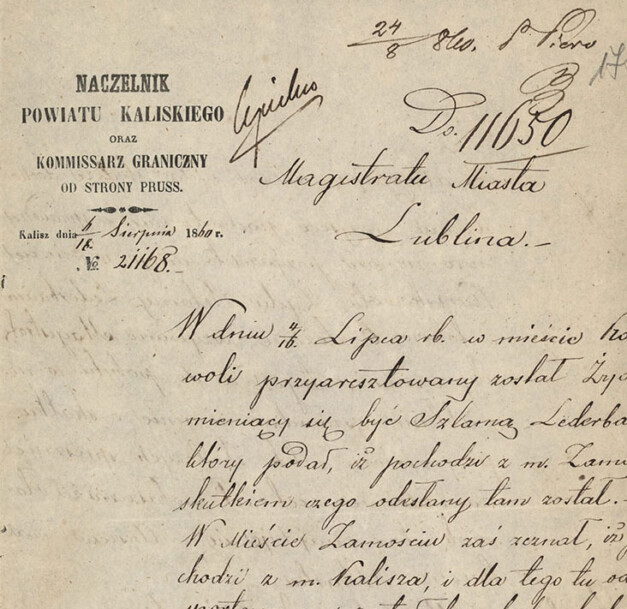 24/8 860.
17
NACZELNIK
POWIATU KALISKIEGO
ORAZ
KOMMISSARZ GRANICZNY
OD STRONY PRUSS.
Kalisz dnia 6/18 Sierpnia 1860 r.
№ 21168.
Do. 11650
Magistratu Miasta
Lublina.
W dniu 4/16 Lipca rb. w mieście
woli przyaresztowany został Żyd
mieniący się być Szlamą Lederba
który podał, iż pochodzi z m. Zamo
skutkiem czego odesłany tam został.
W Mieście Zamościu zaś zeznał, iż
chodzi z m. Kalisza, i dla tego tu od